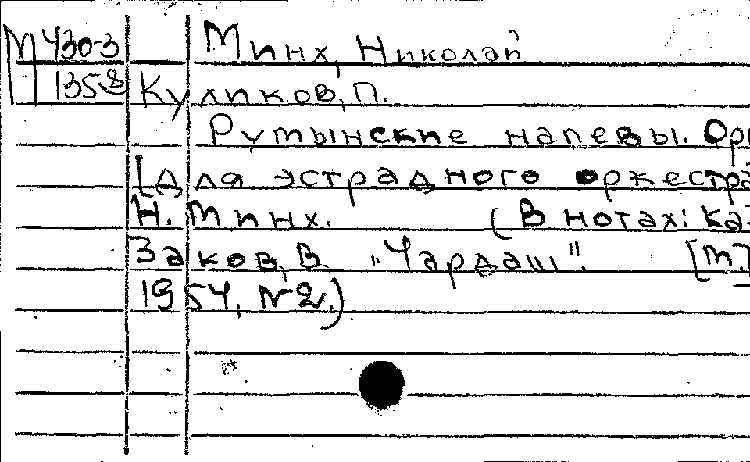 М 430-3 Минх, Николай
1358 Куликов, П.
Румынские напевы. Орк
[Для эстрадного оркестра
Н. Минх. (В нотах: Ка-
заков, В. "Чардаш". [М.]
1954, №2.)